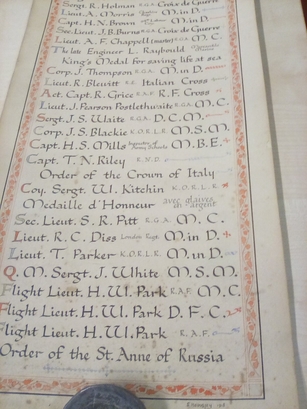 Sergt. R. Holman R.G.A. Croix de Guerre
Lieut. A. Morris M. in D.
Capt. H. N. Brown M. in D.
Sec. Lieut. J. B. Burns R.G.A. Croix de Guerre
Lieut. A. F. Chappell M.C.
The late Engineer L. Raybould
King's Medal for saving life at sea
Corp. J. Thompson R.G.A. M. in D.
Lieut. R. Blewitt R.E. Italian Cross
Act. Capt. R. Grice R.A.F. R.F. Cross
Lieut. J. Pearson Postlethwaite R.G.A. M.C.
Sergt. J. S. Waite R.G.A. D.C.M.
Corp. J. S. Blackie K.O.R.L.R. M.S.M.
Capt. H. S. Mills M.B.E.
Capt. T. N. Riley R.N.D.
Order of the Crown of Italy
Coy. Sergt. W. Kitchin K.O.R.L.R.
Medaille d'Honneur avec glaives en argent
Sec. Lieut. S. R. Pitt R.G.A. M.C.
Lieut. R. C. Diss London Regt. M. in D.
Lieut. T. Parker K.O.R.L.R. M. in D.
Q. M. Sergt. J. White M.S.M.
Flight Lieut. H. W. Park R.A.F. M.C.
Flight Lieut. H. W. Park D.F.C.
Flight Lieut. H. W. Park R.A.F.
Order of the St. Anne of Russia